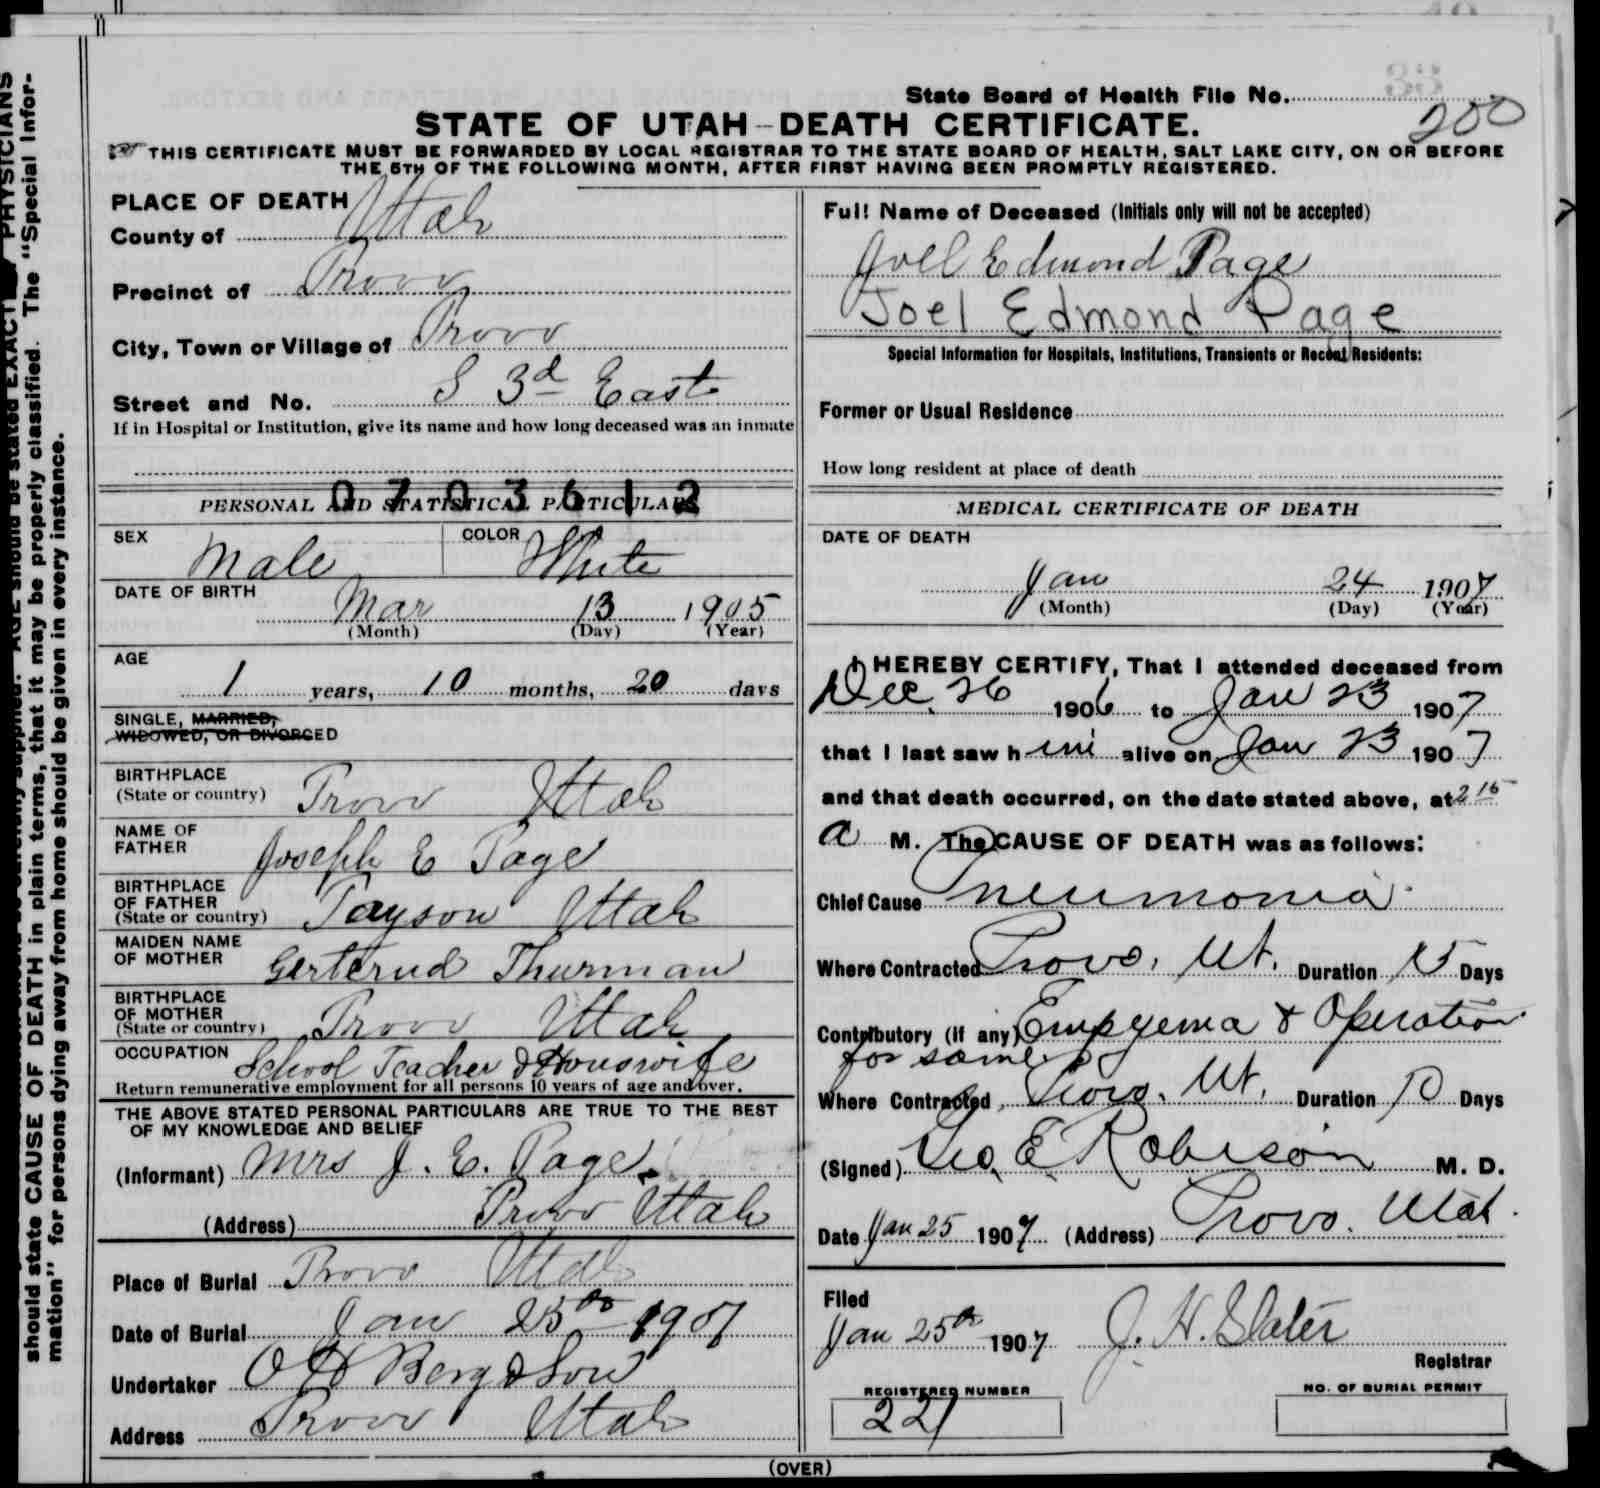 33
State Board of Health File No.
200
STATE OF UTAH-DEATH CERTIFICATE.
THIS CERTIFICATE MUST BE FORWARDED BY LOCAL REGISTRAR TO THE STATE BOARD OF HEALTH, SALT LAKE CITY, ON OR BEFORE
THE 5TH OF THE FOLLOWING MONTH, AFTER FIRST HAVING BEEN PROMPTLY REGISTERED.
PLACE OF DEATH
County of Utah
Precinct of Provo
City, Town or Village of Provo
Street and No. S 3d East
If in Hospital or Institution, give its name and how long deceased was an inmate
0703612
PERSONAL AND STATISTICAL PARTICULARS
SEX Male COLOR White
DATE OF BIRTH Mar 13 1905
(Month) (Day) (Year)
AGE
1 years, 10 months, 20 days
SINGLE, MARRIED,
WIDOWED, OR DIVORCED
BIRTHPLACE
(State or country) Provo Utah
NAME OF
FATHER Joseph E Page
BIRTHPLACE
OF FATHER
(State or country) Payson Utah
MAIDEN NAME
OF MOTHER Gerterud Thurman
BIRTHPLACE
OF MOTHER
(State or country) Provo Utah
OCCUPATION School Teacher & Houswife
Return remunerative employment for all persons 10 years of age and over.
THE ABOVE STATED PERSONAL PARTICULARS ARE TRUE TO THE BEST
OF MY KNOWLEDGE AND BELIEF
(Informant) Mrs J. E. Page.
(Address) Provo Utah
Place of Burial Provo Utah
Date of Burial Jan 25th 1907
Undertaker O H Berg & Son
Address Provo Utah
Full Name of Deceased (Initials only will not be accepted)
Joel Edmond Page
Joel Edmond Page
Special Information for Hospitals, Institutions, Transients or Recent Residents:
Former or Usual Residence
How long resident at place of death
MEDICAL CERTIFICATE OF DEATH
DATE OF DEATH
Jan 24 1907
(Month) (Day) (Year)
I HEREBY CERTIFY, That I attended deceased from
Dec. 26 1906 to Jan 23 1907
that I last saw him alive on Jan 23 1907
and that death occurred, on the date stated above, at 2 15
a M. The CAUSE OF DEATH was as follows:
Chief Cause Pneumonia.
Where Contracted Provo, Ut. Duration 15 Days
Contributory (if any) Empyema & Operation
for same
Where Contracted Provo, Ut. Duration 10 Days
(Signed) Geo. E Robison M. D.
Date Jan 25 1907 (Address) Provo. Utah.
Filed
Jan 25th 1907 J. H. Slater
Registrar
REGISTERED NUMBER NO. OF BURIAL PERMIT
221
(OVER)
should state CAUSE OF DEATH in plain terms, that it may be properly classified. The "Special Infor-
mation" for persons dying away from home should be given in every instance.